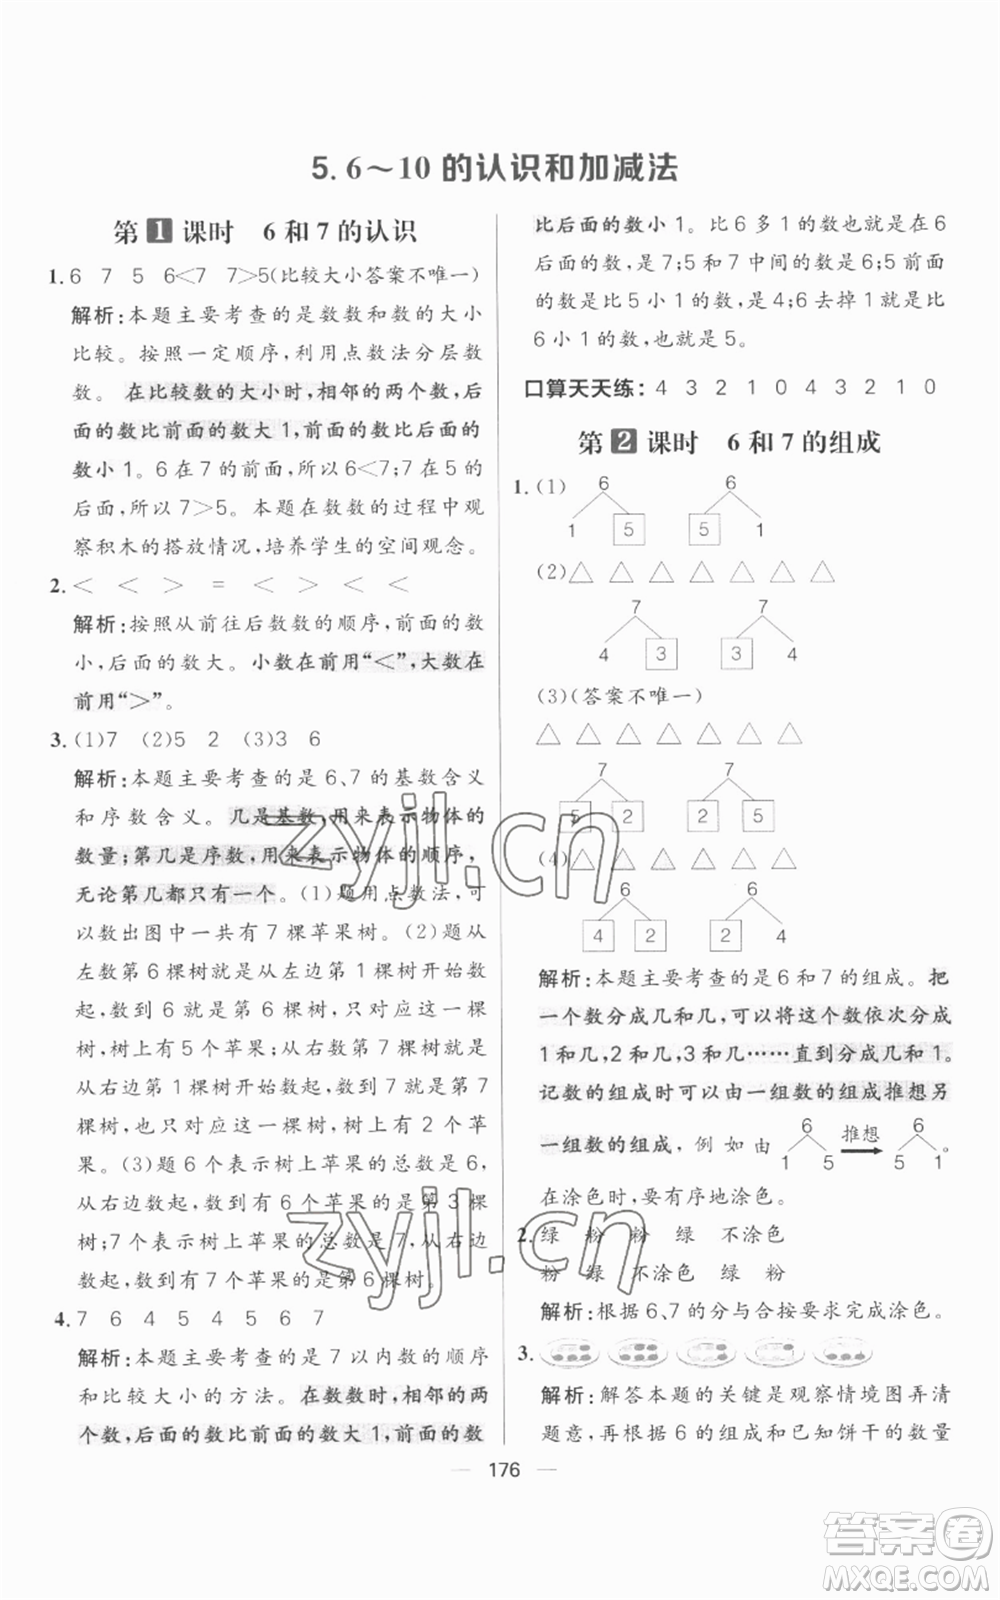 5. 6～10的认识和加减法
第1课时 6和7的认识
1. 6 7 5 6<7 7>5(比较大小答案不唯一)
解析:本题主要考查的是数数和数的大小
比较。按照一定顺序,利用点数法分层数
数。在比较数的大小时,相邻的两个数,后
面的数比前面的数大1,前面的数比后面的
数小1。6在7的前面,所以6<7;7在5的
后面,所以7>5。本题在数数的过程中观
察积木的搭放情况,培养学生的空间观念。
2. < < > = < > < <
解析:按照从前往后数数的顺序,前面的数
小,后面的数大。小数在前用“<”,大数在
前用“>”。
3. (1)7 (2)5 2 (3)3 6
解析:本题主要考查的是6、7的基数含义
和序数含义。几是基数,用来表示物体的
数量;第几是序数,用来表示物体的顺序,
无论第几都只有一个。(1)题用点数法,可
以数出图中一共有7棵苹果树。(2)题从
左数第6棵树就是从左边第1棵树开始数
起,数到6就是第6棵树,只对应这一棵
树,树上有5个苹果;从右数第7棵树就是
从右边第1棵树开始数起,数到7就是第7
棵树,也只对应这一棵树,树上有2个苹
果。(3)题6个表示树上苹果的总数是6,
从左边数起,数到有6个苹果的是第3棵
树;7个表示树上苹果的总数是7,从左边
数起,数到有7个苹果的是第6棵树。
4. 7 6 4 5 4 5 6 7
解析:本题主要考查的是7以内数的顺序
和比较大小的方法。在数数时,相邻的两
个数,后面的数比前面的数大1,前面的数
比后面的数小1。比6多1的数也就是在6
后面的数,是7;5和7中间的数是6;5前面
的数是比5小1的数,是4;6去掉1就是比
6小1的数,也就是5。
口算天天练: 4 3 2 1 0 4 3 2 1 0
第2课时 6和7的组成
1. (1) 6 6
1 5 5 1
(2) △ △ △ △ △ △ △
7 7
4 3 3 4
(3)(答案不唯一)
△ △ △ △ △ △ △
7 7
5 2 2 5
(4) △ △ △ △ △ △
6 6
4 2 2 4
解析:本题主要考查的是6和7的组成。把
一个数分成几和几,可以将这个数依次分成
1和几,2和几,3和几……直到分成几和1。
记数的组成时可以由一组数的组成推想另
一组数的组成,例如由 6 1 5 推想 6 5 1
在涂色时,要有序地涂色。
2. 绿 粉 粉 绿 不涂色
粉 绿 不涂色 绿 粉
解析:根据6、7的分与合按要求完成涂色。
3.
解析:解答本题的关键是观察情境图弄清
题意,再根据6的组成和已知饼干的数量
176
zyjl.cn
zyjl.cn
答案圈
MXQE.COM